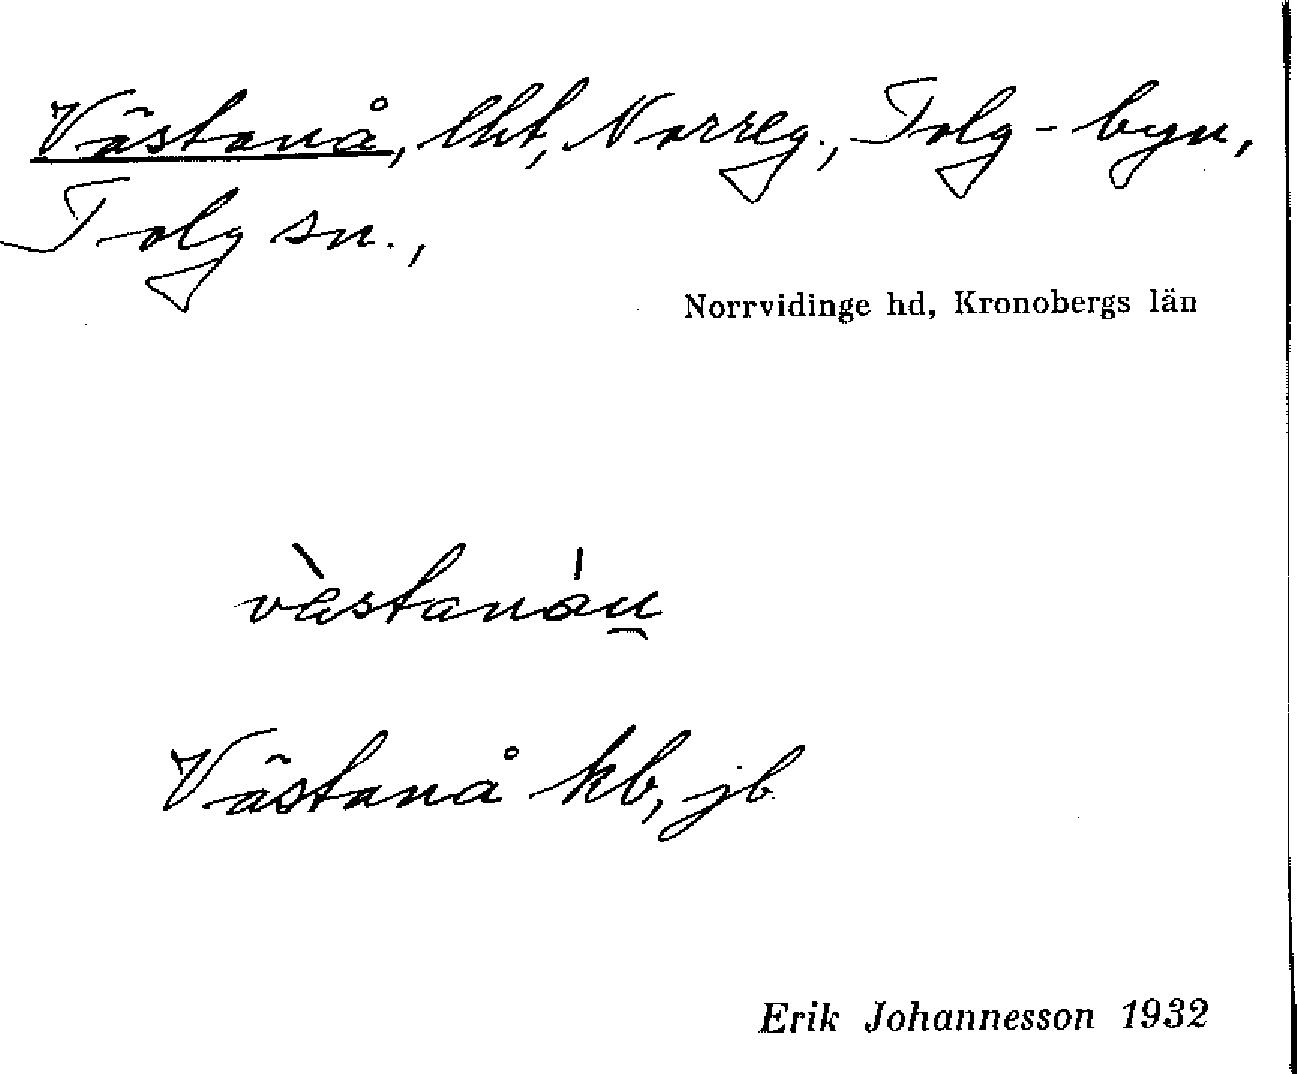 Västanå, lht, Norreg., Tolg-byn,
Tolg sn.,
Norrvidinge hd, Kronobergs län
Västanå kb, jb.
Erik Johannesson 1932